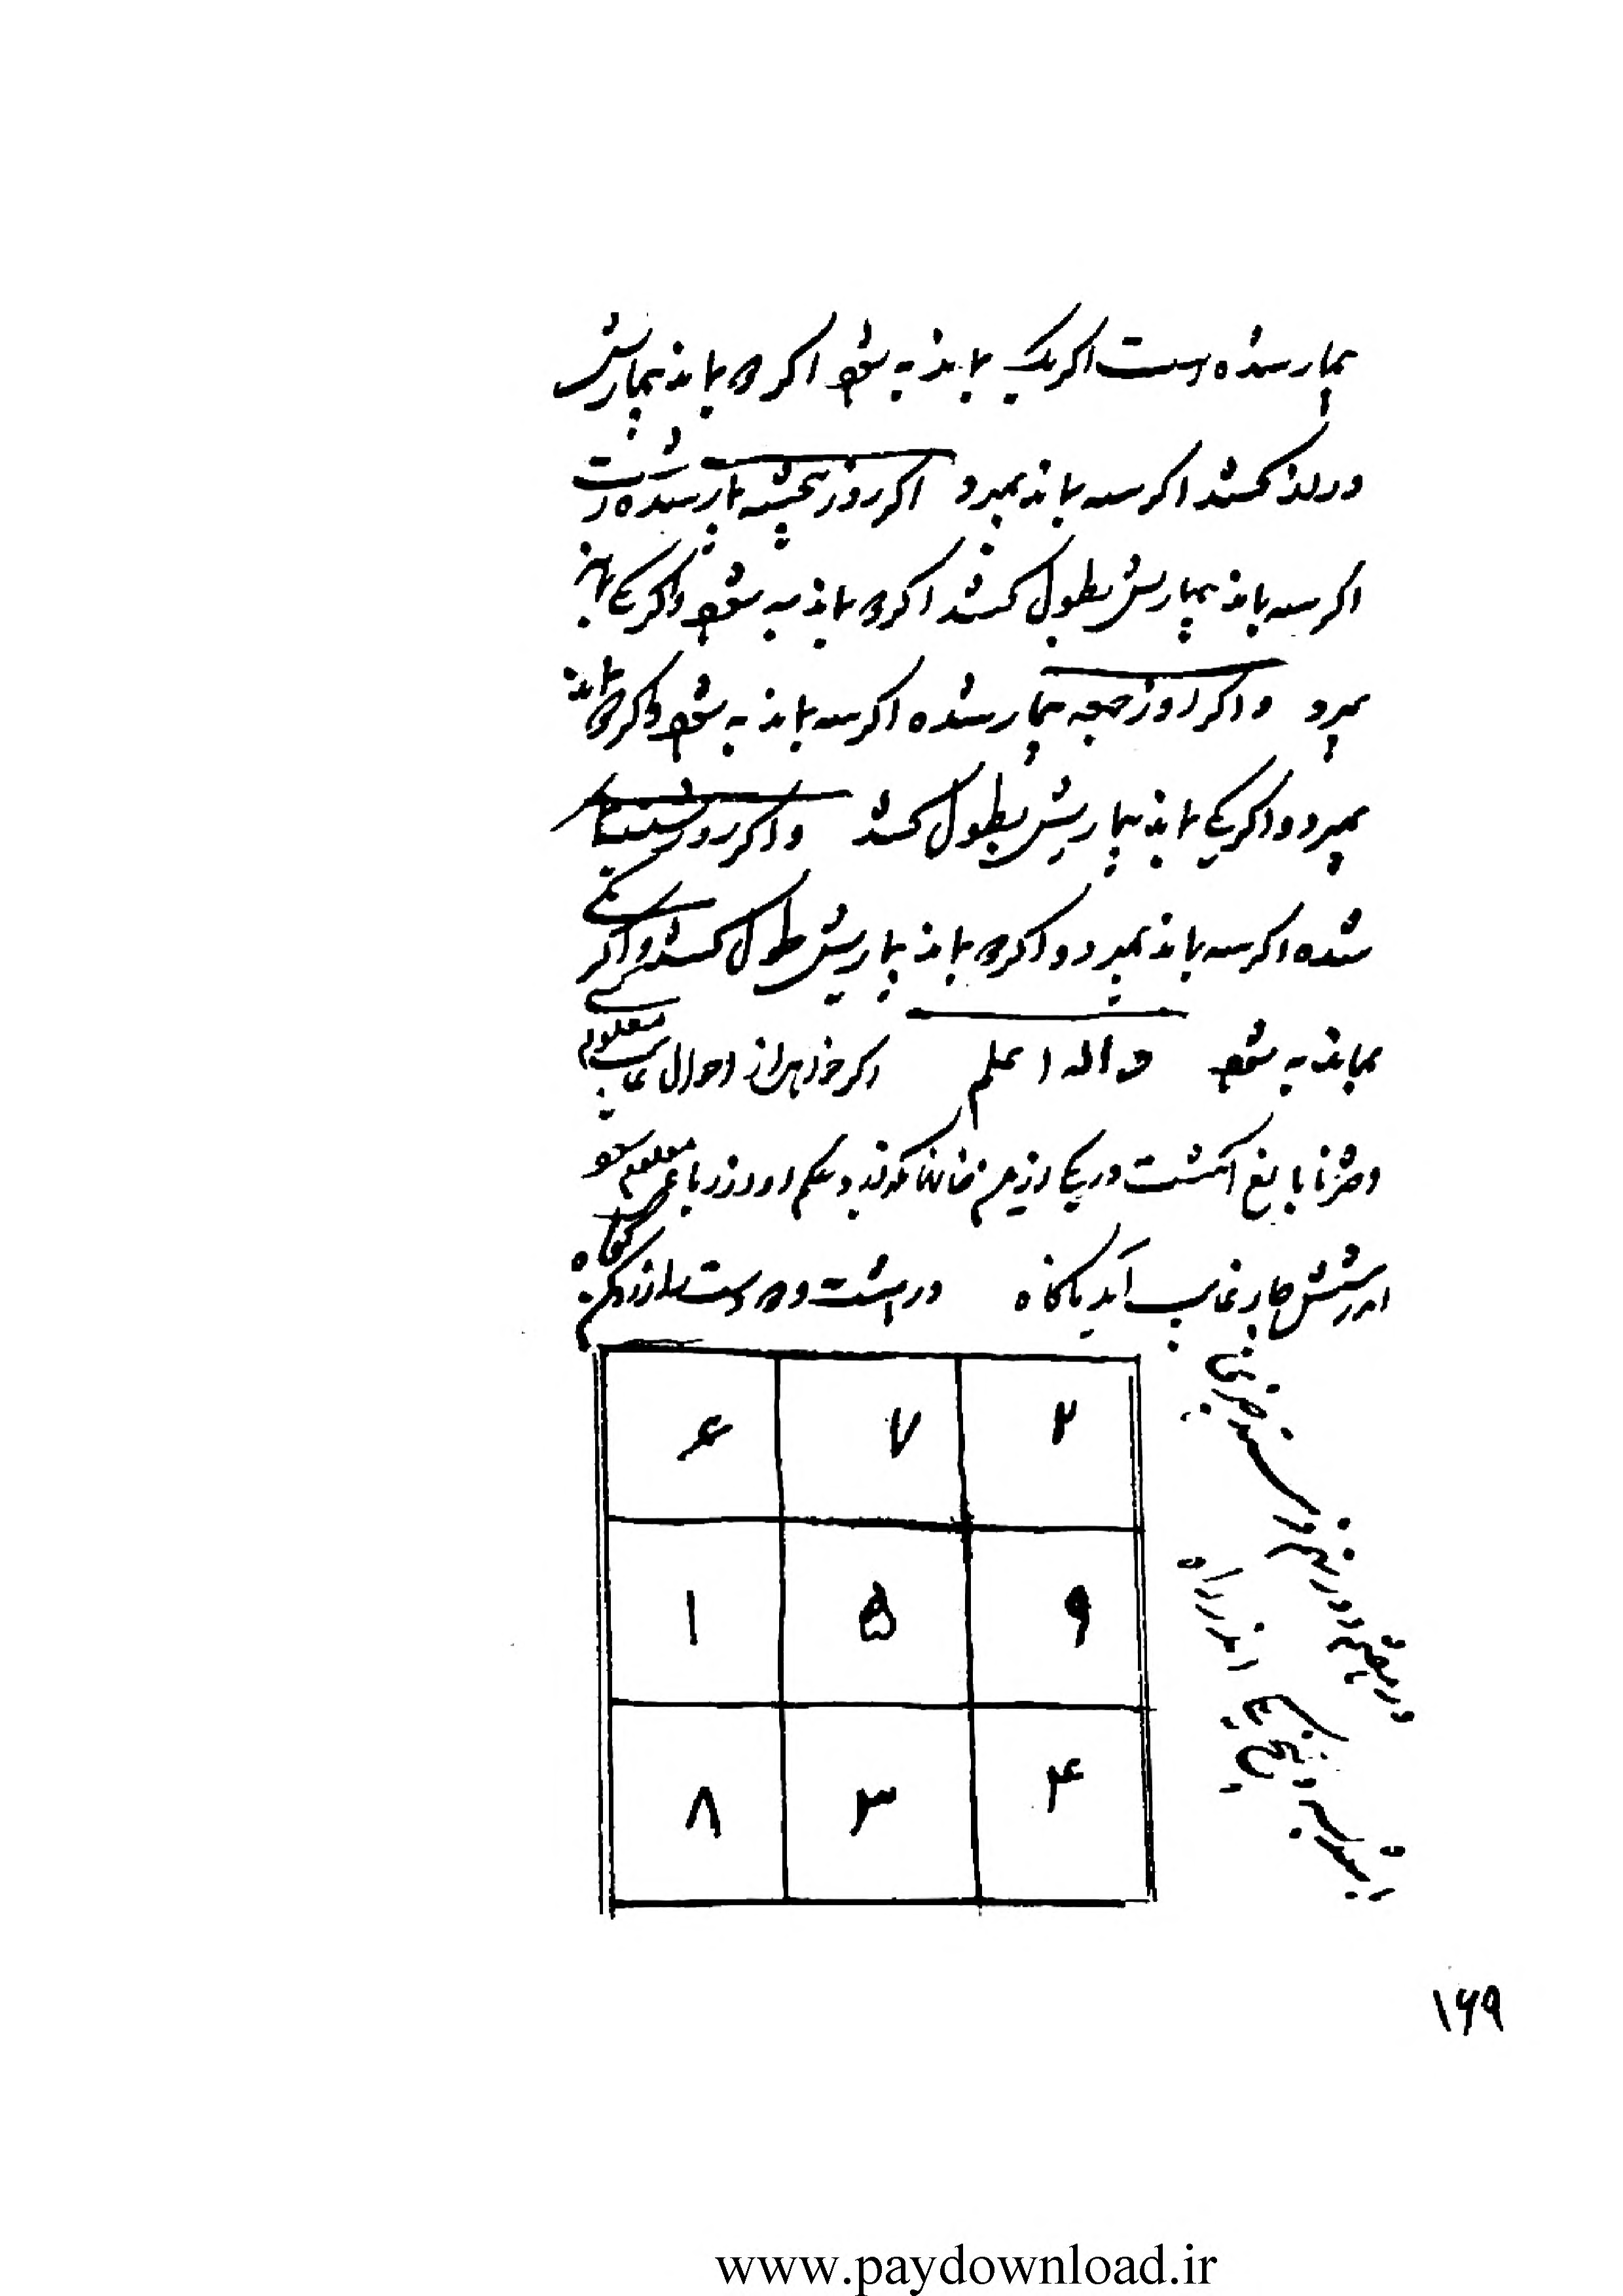 بیمار شده است اگر یک بماند به شود اگر دو بماند بیماریش
دراز کشد اگر سه بماند بمیرد اگر روز پنجشنبه بیمار شده است
اگر سه بماند بیماریش بطول کشد اگر دو بماند به شود و اگر یکی بماند
بمیرد و اگر روز جمعه بیمار شده اگر سه بماند به شود و اگر دو بماند
بمیرد و اگر یکی بماند بیماریش بطول کشد و اگر روز شنبه بیمار
شده اگر سه بماند بمیرد و اگر دو بماند بیماریش طول کشد و اگر یکی
بماند به شود واله اعلم اگر خواهی از احوال غایب معلوم
دختر نابالغ انگشت در یکی از این خانها گذارد و حکم او از رباعی معلوم شود
در شش چار غایب آید ناگاه در هشت و دو است
۲ ۷ ۶
۹ ۵ ۱
۴ ۳ ۸
در راه
۱۶۹
www.paydownload.ir